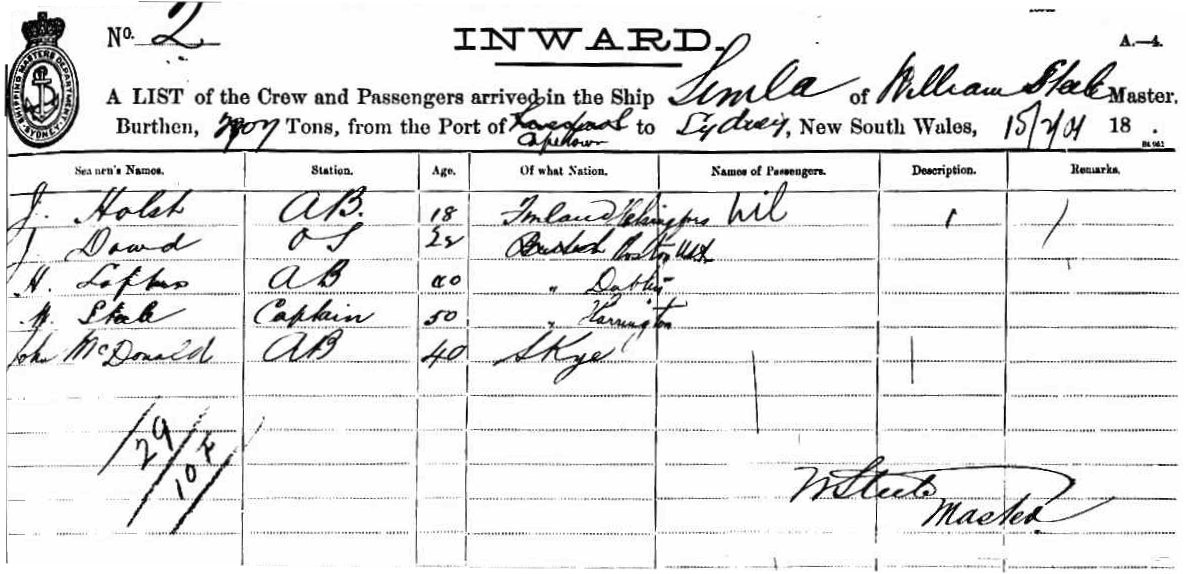 No. 2 INWARD. A.—4.
SHIPPING MASTERS DEPARTMENT SYDNEY
A LIST of the Crew and Passengers arrived in the Ship Simla of William Steele Master,
Burthen, Tons, from the Port of Liverpool to Sydney, New South Wales, 15/2/01 18 .
Capetown
Seamen's Names. Station. Age. Of what Nation. Names of Passengers. Description. Remarks.
J. Holst AB. 18 Finland Helsingfors Nil
J. Dowd OS 22 British Boston
H. Loftus AB 40 " Dublin
W. Steele Captain 50 " Harrington
John McDonald AB 40 Skye
29
10
W Steele
Master